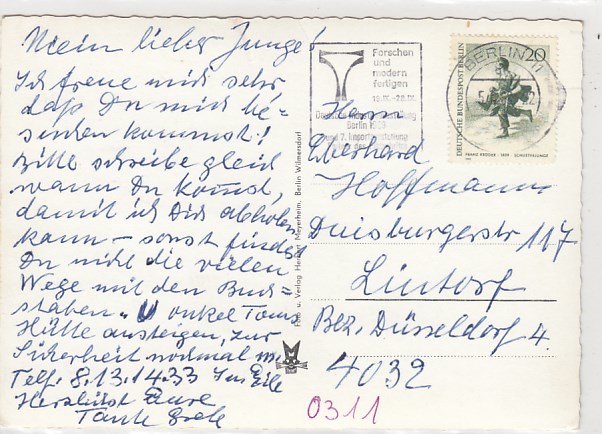 Mein lieber Junge!
Ich freue mich sehr
daß Du mich be=
suchen kommst!
Bitte schreibe gleich
wann Du kommst,
damit ich Dich abholen
kann – sonst findest
Du nicht die vielen
Wege mit den Buch=
staben „U" onkel Toms
Hütte aussteigen, zur
Sicherheit nochmal m.
Telf. 8.13.14.33 In Eile
Herzlichst Eure
Tante Grete
Forschen
und
modern
fertigen
Deutsche Industrieausstellung
Berlin
und 7. Importausstellung
BERLIN 11
20
DEUTSCHE BUNDESPOST BERLIN
FRANZ KRÜGER 1839 SCHUSTERJUNGE
Foto u. Verlag Herbert Meyerheim, Berlin Wilmersdorf
Herrn
Eberhard
Hoffmann
Duisburgerstr 117
Lintorf
Bez. Düsseldorf 4.
4032
0311